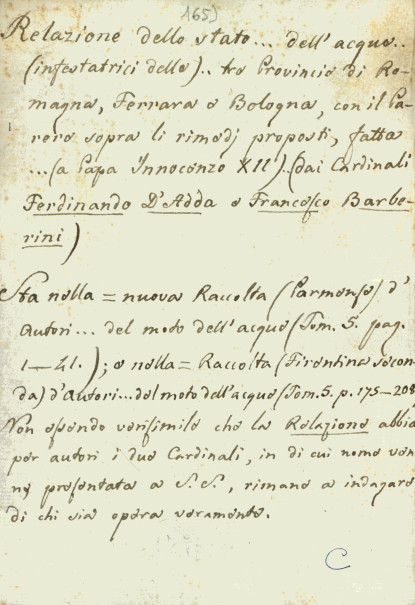 165)
Relazione dello stato... dell'acque..
(infestatrici delle).. tre Provincie di Ro-
magna, Ferrara e Bologna, con il Pa-
rere sopra li rimedj proposti, fatta
...(a Papa Innocenzo XII)..(dai Cardinali
Ferdinando D'Adda e Francesco Barbe-
rini)
Sta nella = nuova Raccolta (Parmense) d'
Autori... del moto dell'acque (Tom. 5. pag.
1-41.); e nella = Raccolta (Fiorentina secon-
da) d'Autori...del moto dell'acque (Tom. 5. p. 175-208
Non essendo verisimile che la Relazione abbia
per autori i due Cardinali, in di cui nome ven-
ne presentata a S. S., rimane a indagare
di chi sia opera veramente.
C